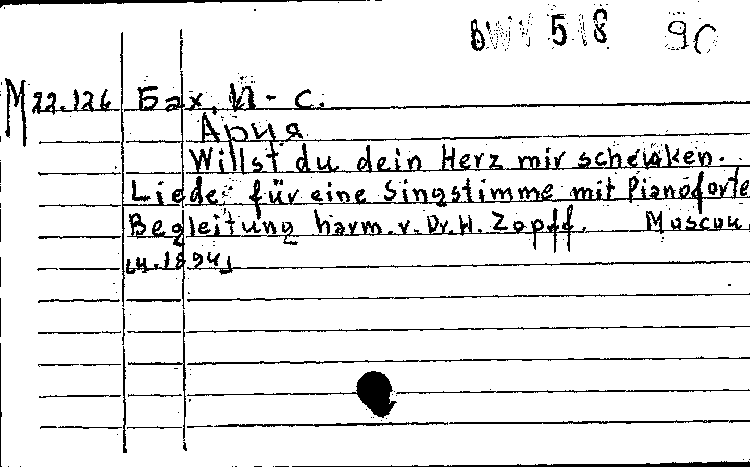 BWV 518 90
М 22.126 Бах, И-С.
Ария
Willst du dein Herz mir schenken.
Lieder für eine Singstimme mit Pianoforte
Begleitung harm. v. Dr. H. Zopff. Moscou,
[4.1894]